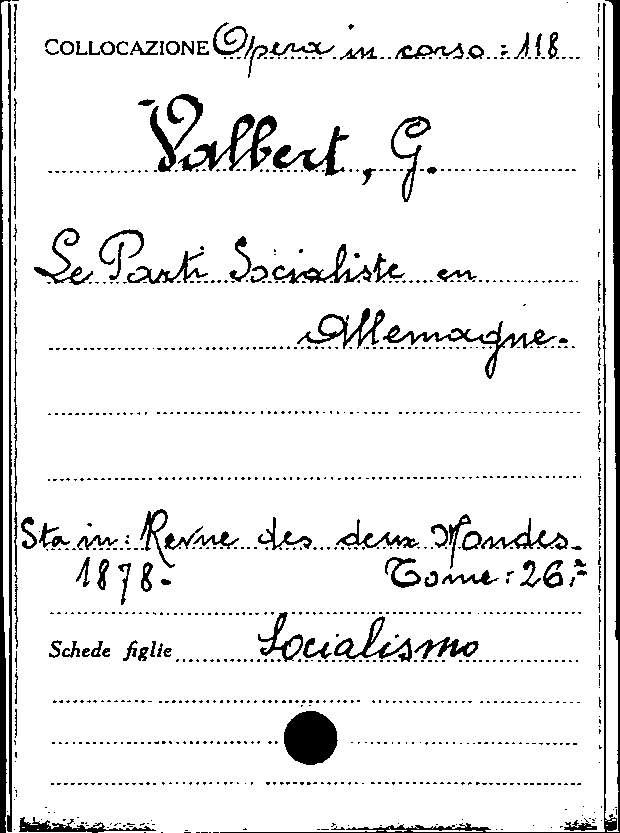 COLLOCAZIONE Opera in corso : 118
Valbert, G.
Le Parti Socialiste en
Allemagne.
Sta in: Revue des deux Mondes.
1878. Tome: 26.
Schede figlie Socialismo